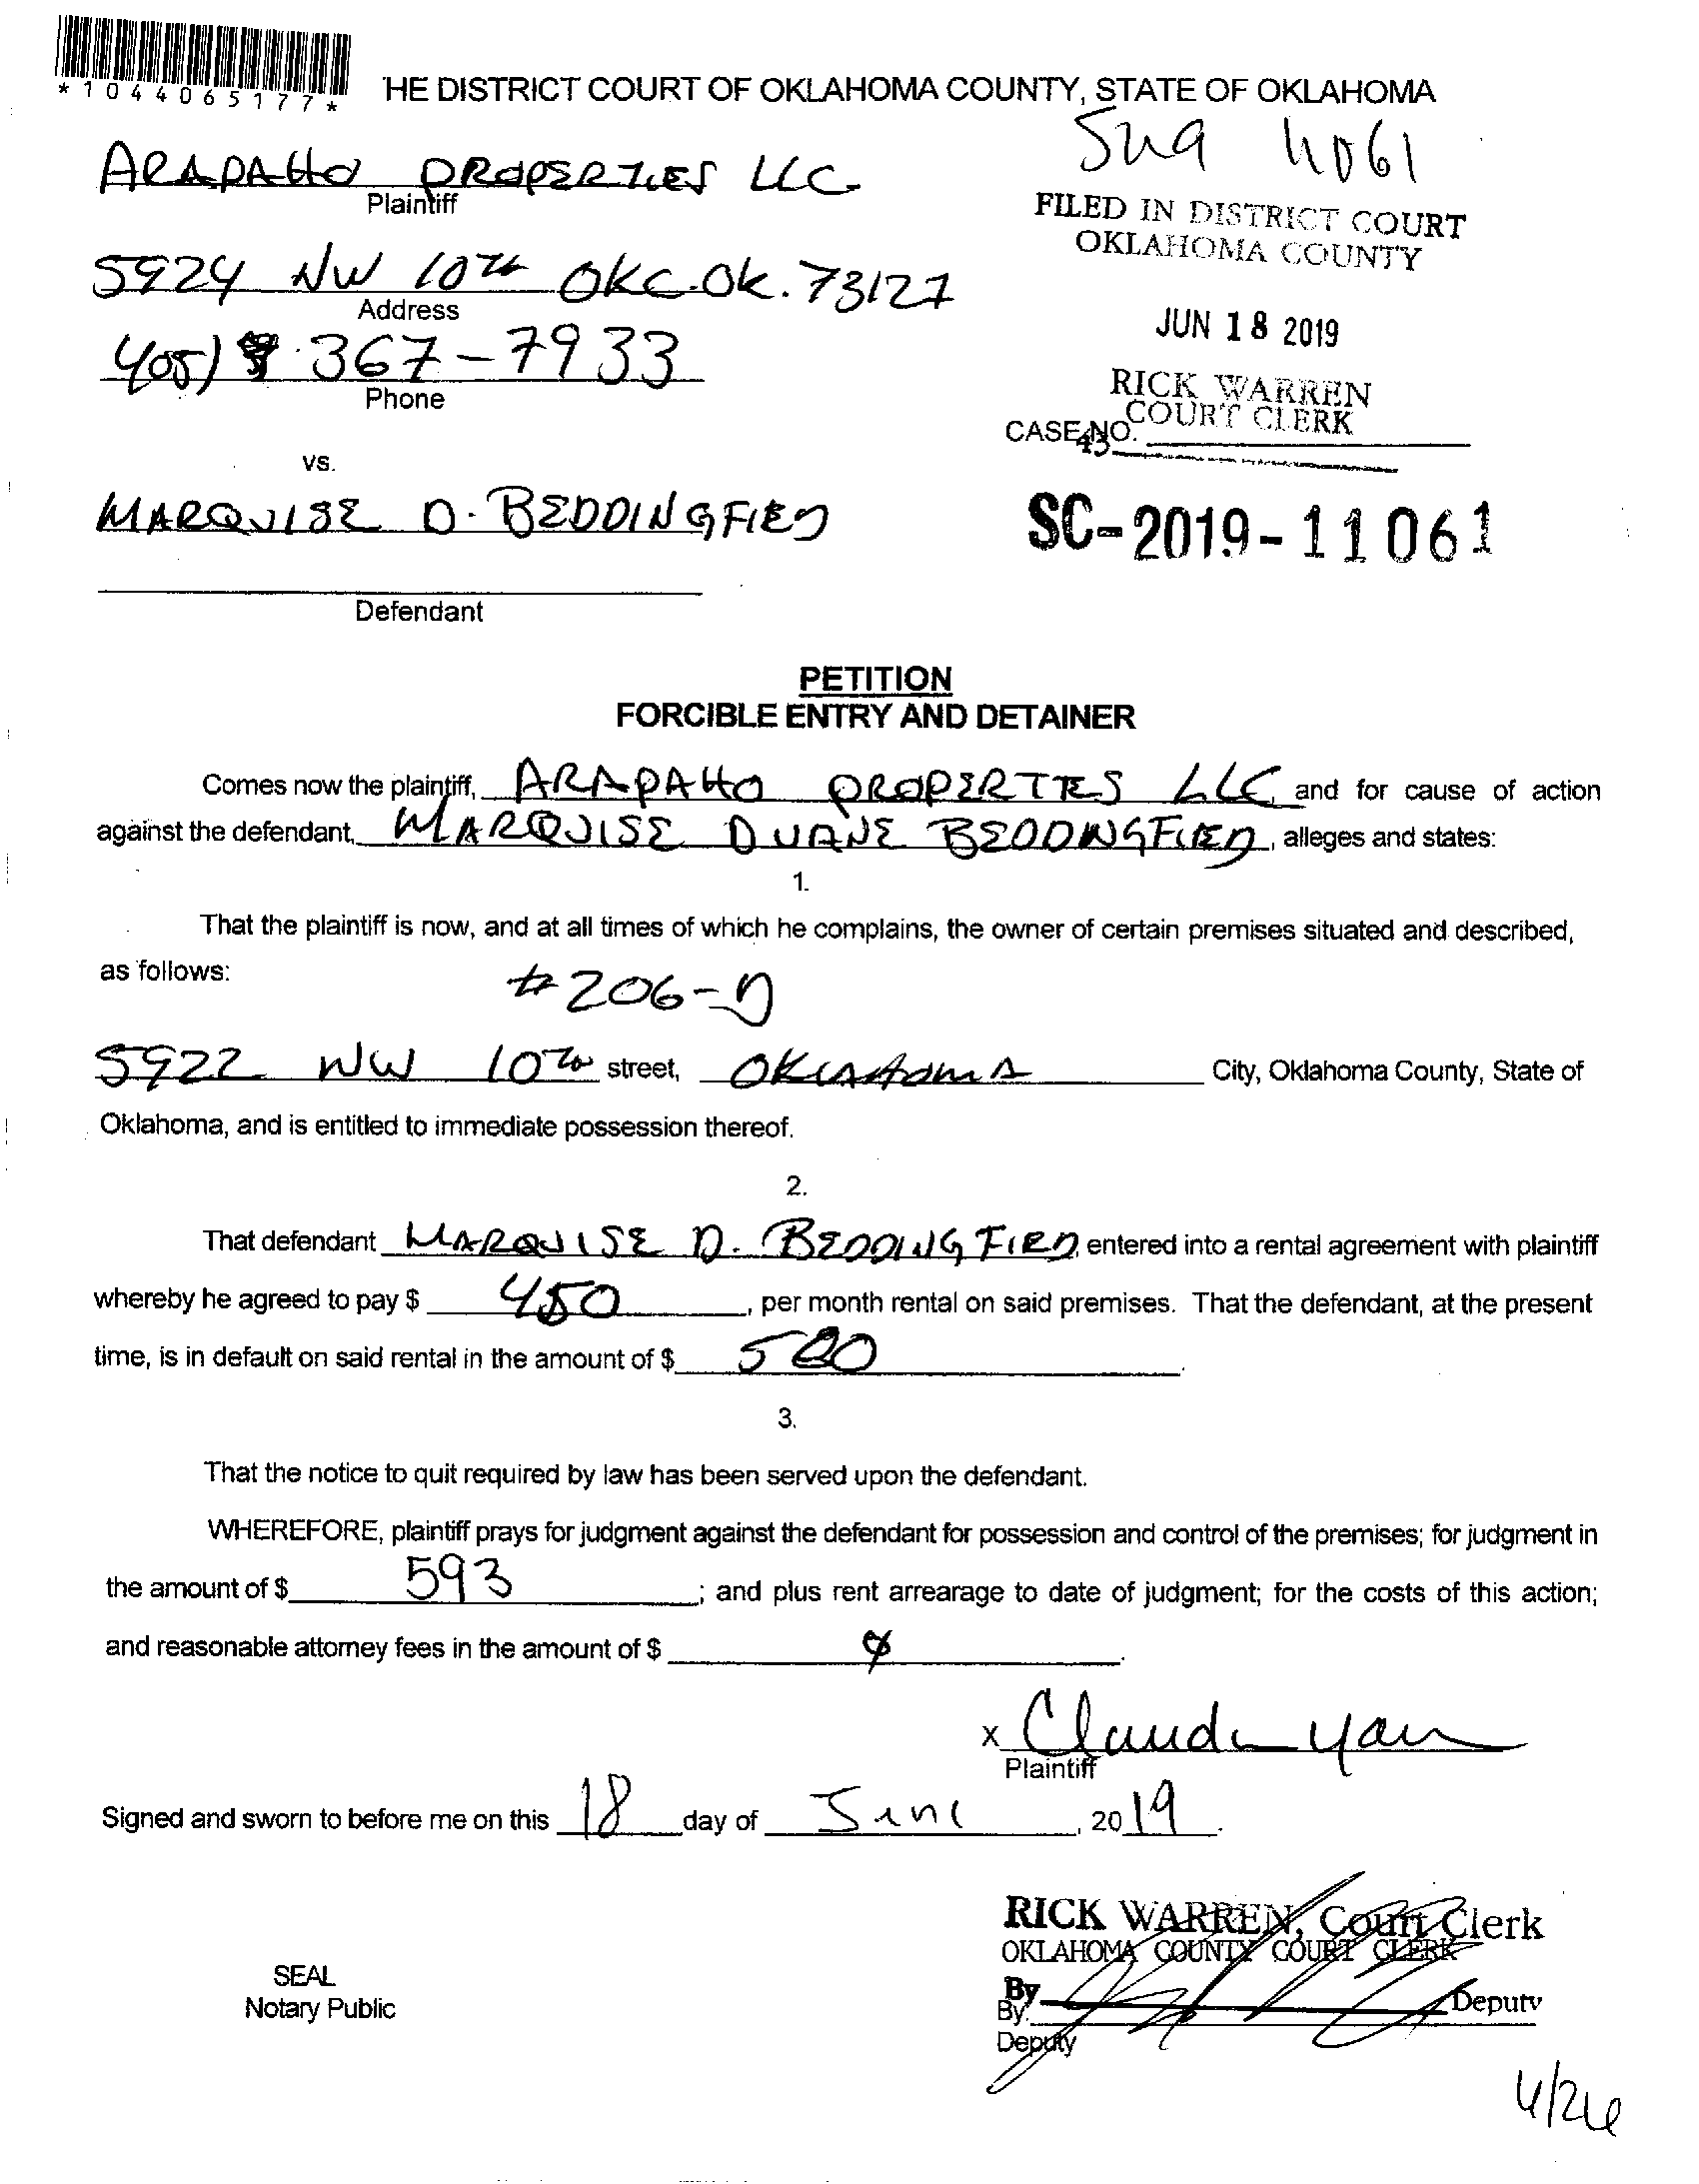 *1044065177*
HE DISTRICT COURT OF OKLAHOMA COUNTY, STATE OF OKLAHOMA
ARAPAHO PROPERTIES LLC
Plaintiff
FILED IN DISTRICT COURT
OKLAHOMA COUNTY
5924 NW 10th OKC. OK. 73127
Address
JUN 18 2019
405) 367-7933
Phone
RICK WARREN
COURT CLERK
CASE NO.
43
vs.
MARQUISE D. BEDDINGFIED
SC-2019-11061
Defendant
PETITION
FORCIBLE ENTRY AND DETAINER
Comes now the plaintiff, ARAPAHO PROPERTIES LLC, and for cause of action
against the defendant, MARQUISE DUANE BEDDINGFIED, alleges and states:
1.
That the plaintiff is now, and at all times of which he complains, the owner of certain premises situated and described,
as follows:
#206-D
5922 NW 10th street, OKLAHOMA City, Oklahoma County, State of
Oklahoma, and is entitled to immediate possession thereof.
2.
That defendant MARQUISE D. BEDDINGFIED entered into a rental agreement with plaintiff
whereby he agreed to pay $ 450, per month rental on said premises. That the defendant, at the present
time, is in default on said rental in the amount of $ 500.
3.
That the notice to quit required by law has been served upon the defendant.
WHEREFORE, plaintiff prays for judgment against the defendant for possession and control of the premises; for judgment in
the amount of $ 593; and plus rent arrearage to date of judgment; for the costs of this action;
and reasonable attorney fees in the amount of $ .
X
Plaintiff
Signed and sworn to before me on this 18 day of June, 2019.
RICK WARREN, Court Clerk
OKLAHOMA COUNTY COURT CLERK
SEAL
Notary Public
By Deputy
By:
Deputy